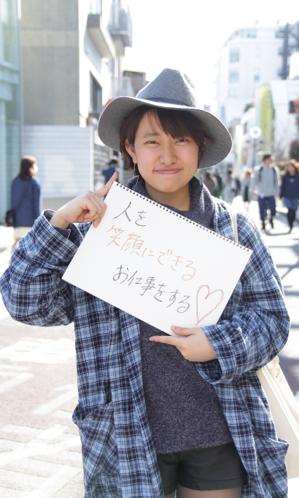 人を
笑顔にできる
お仕事をする♡